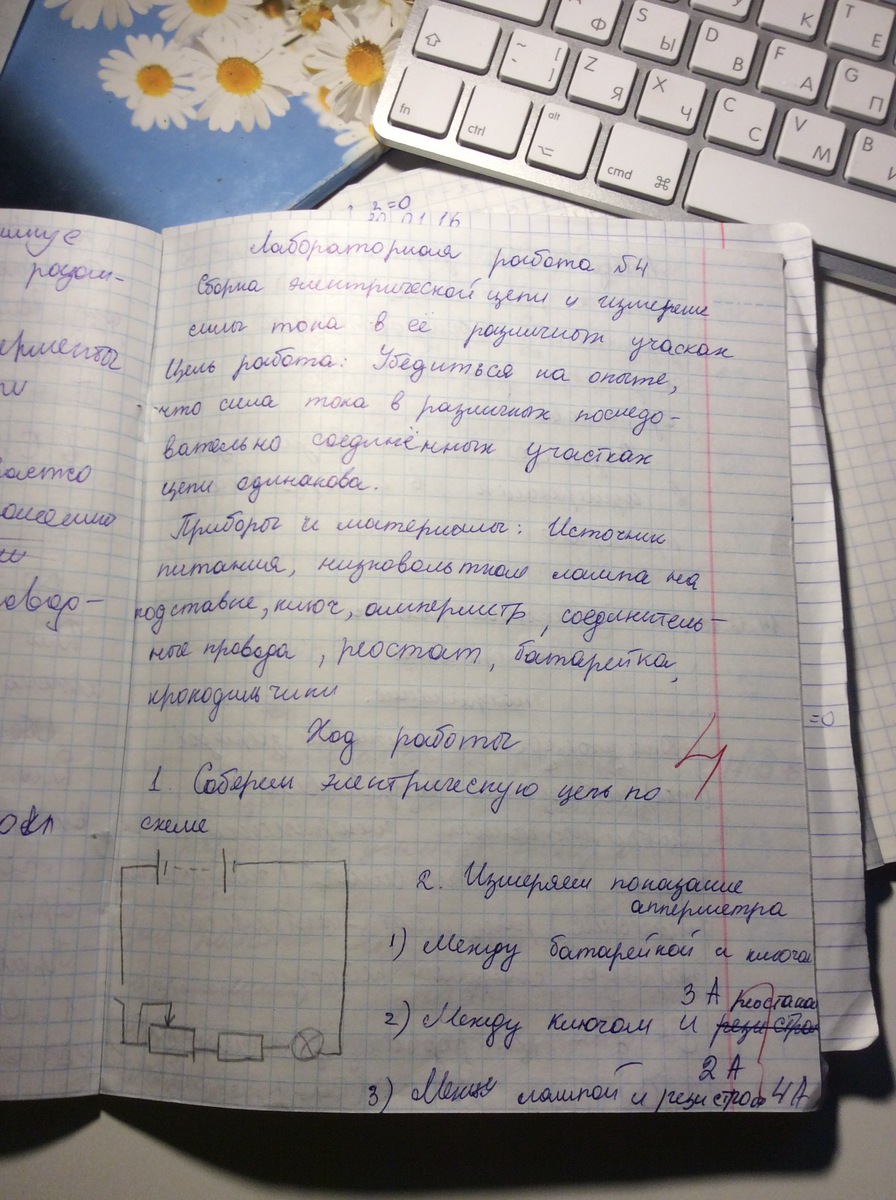 Ф
S
Ы
D
В
F
А
G
П
К
Т
Е
Z
Я
X
Ч
C
С
V
М
В
И
fn
ctrl
alt
cmd
=0
=0
Лабораторная работа №4
Сборка электрической цепи и измерение
силы тока в её различных учасках
Цель работа: Убедиться на опыте,
что сила тока в различных последо-
вательно соединённых участках
цепи одинакова.
Приборы и материалы: Источник
питания, низковольтная лампа на
подставке, ключ, амперметр, соединитель-
ные провода, реостат, батарейка,
крокодильчики
Ход работы
4
1. Соберем электрическую цепь по
схеме
2. Измеряем показание
амперметра
1) Между батарейкой и ключом
3 А
2) Между ключом и реостатом
2 А
3) Между лампой и резистром 4 А